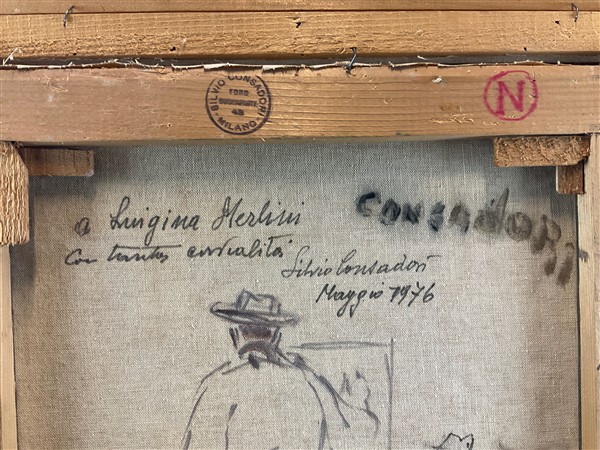 SILVIO CONSADORI
FORO
BUONAPARTE
48
MILANO
N
a Luigina Merlini
Con tanta cordialità
CONSADORI
Silvio Consadori
Maggio 1976